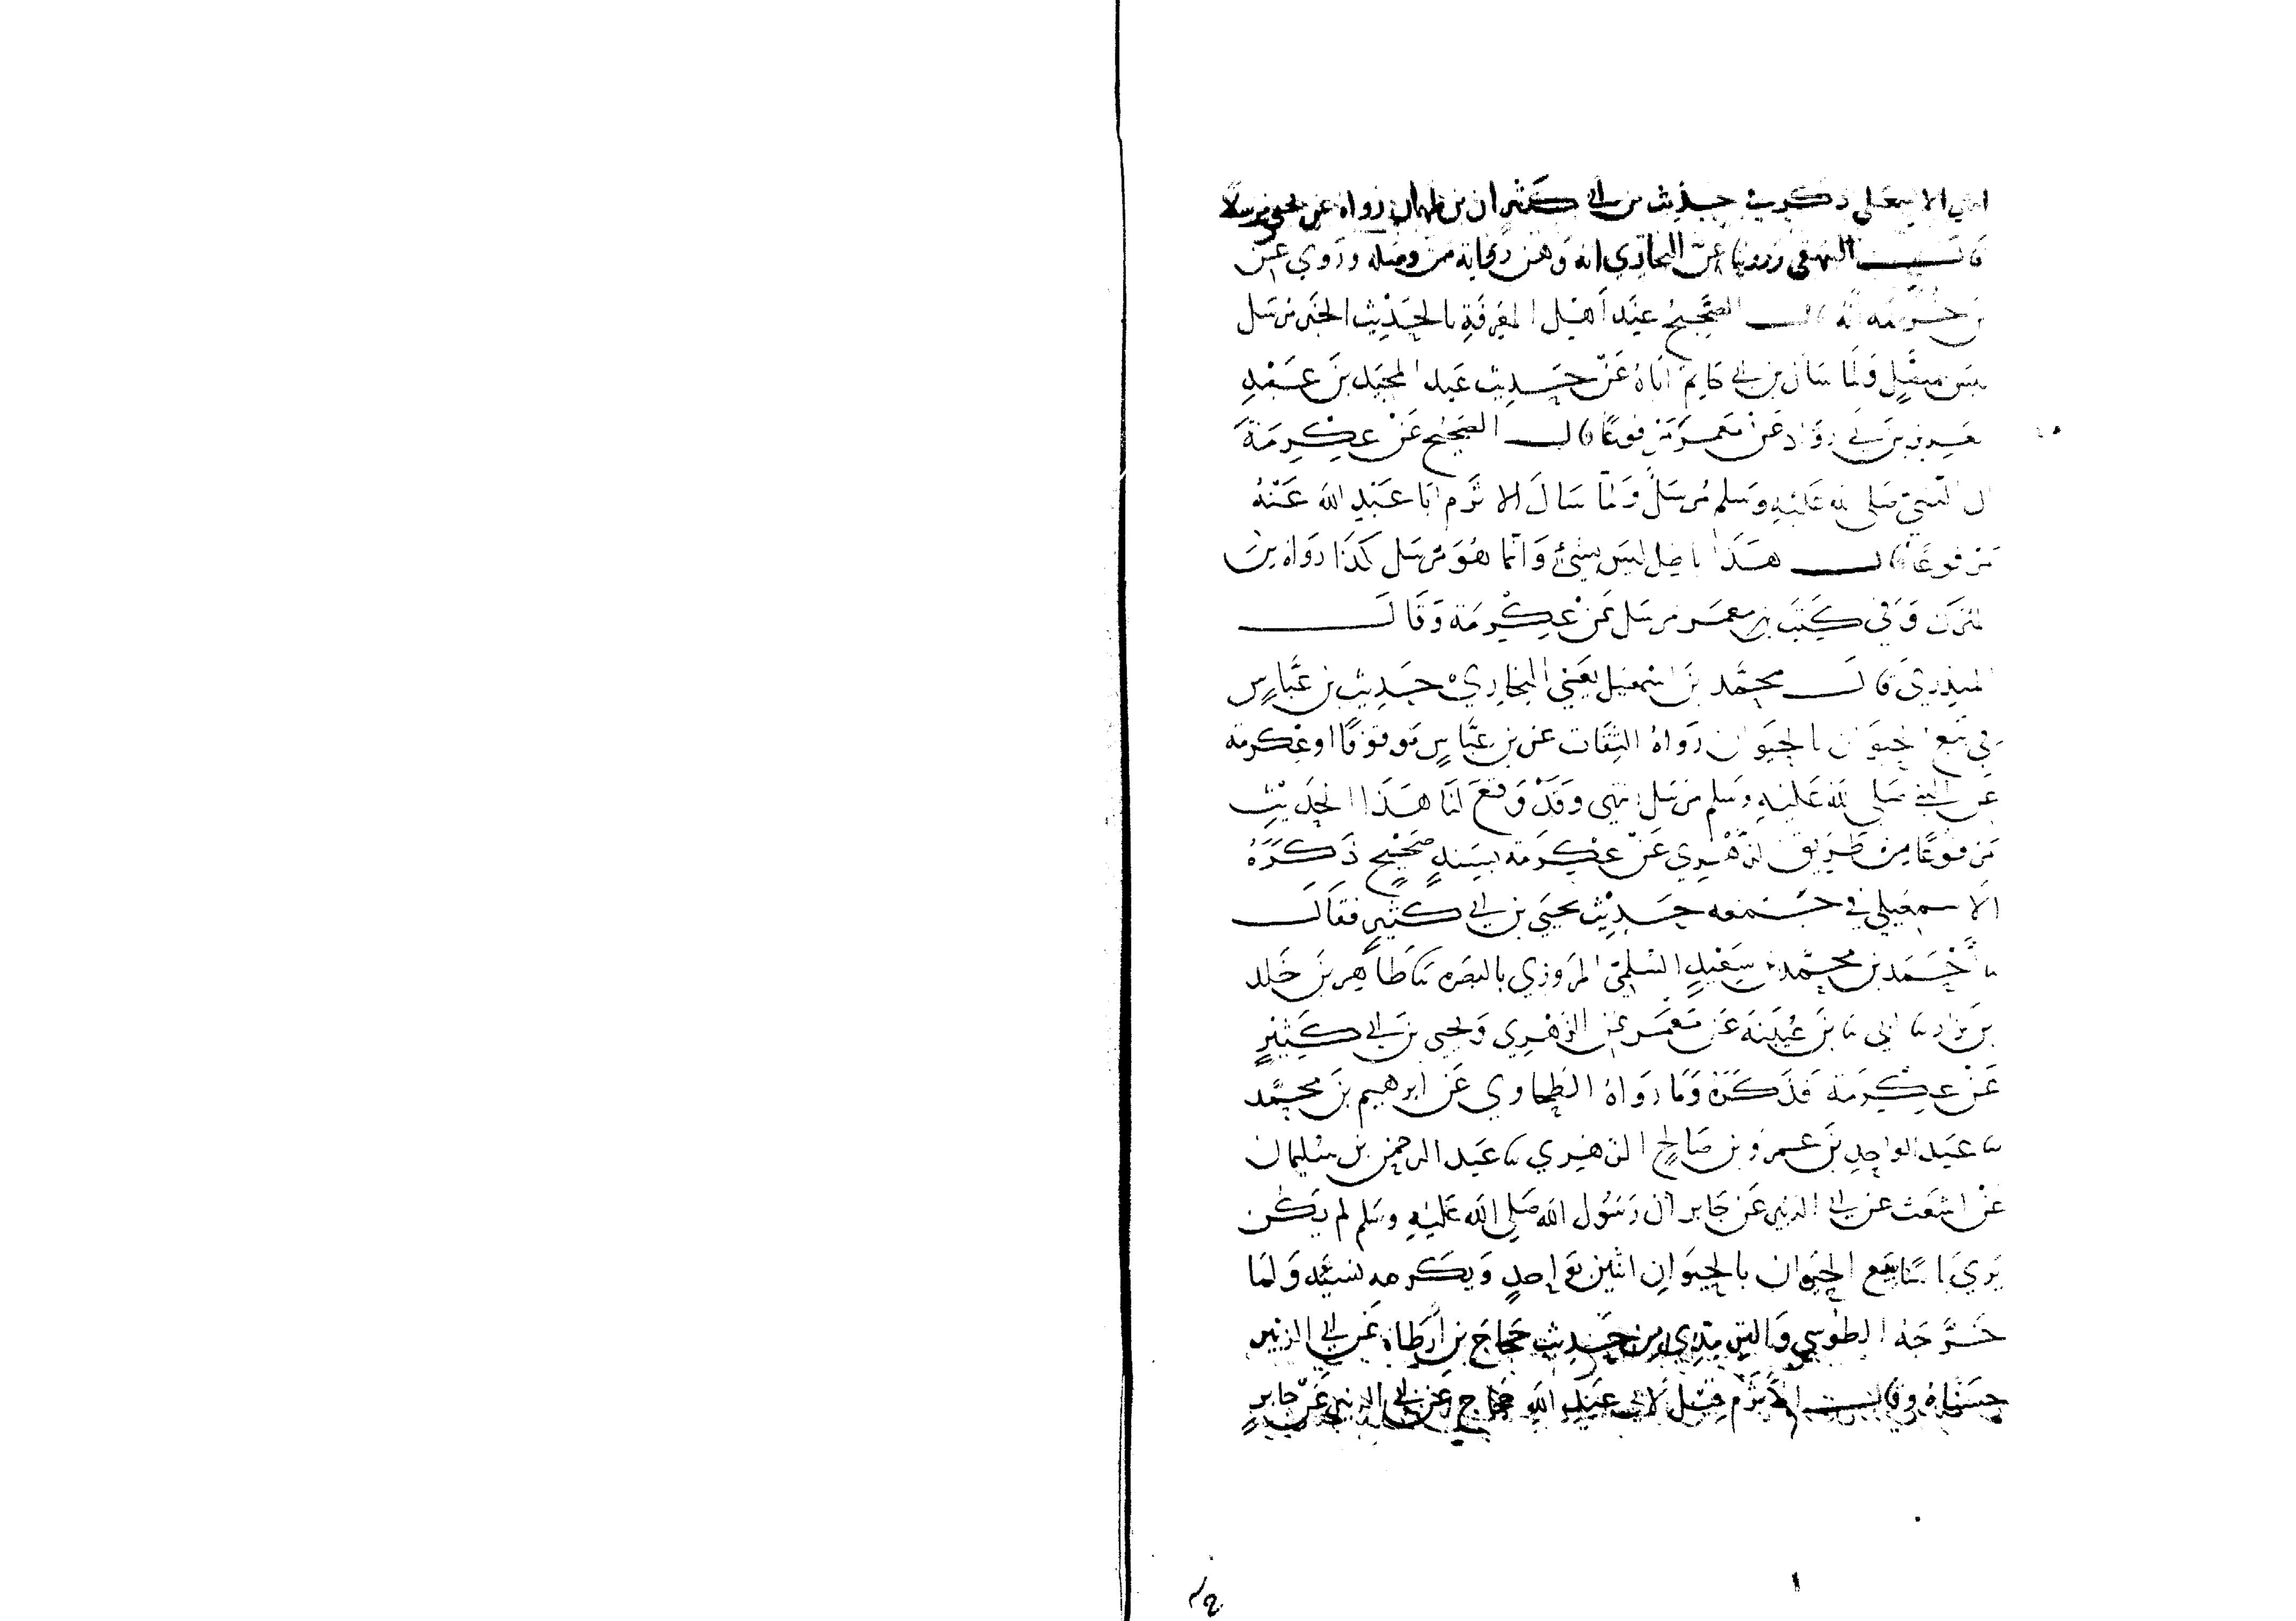 الاسمعيلي ذكر في حديث بن أبي كثير ان بن طهمان رواه عن يحيى مرسلا
قال البيهقي وروينا عن البخاري انه وهن رواية من وصله وروي عن
بن خزيمة انه قال الصحيح عند أهل المعرفة بالحديث الخبر مرسل
ليس متصل ولما سأل بن أبي حاتم اباه عن حديث عبد المجيد بن عبد
العزيز بن أبي رواد عن معمر مرفوعا قال الصحيح عن عكرمة
ان النبي صلى الله عليه وسلم مرسل ولما سال الاثرم ابا عبد الله عنه
مرفوعا قال هذا باطل ليس بشيء وانما هو مرسل كذا رواه بن
وفي كتب معمر مرسل عن عكرمة وقال
المنذري قال محمد بن اسمعيل يعني البخاري حديث بن عباس
في بيع الحيوان بالحيوان رواه الثقات عن بن عباس موقوفا او عكرمة
عن النبي صلى الله عليه وسلم مرسل انتهى وقد وقع لنا هذا الحديث
مرفوعا من طريق الزهري عن عكرمة بسند صحيح ذكره
الاسمعيلي في جمعه حديث يحيى بن أبي كثير فقال
نا أحمد بن محمد بن سعيد السلمي المروزي بالبصره ثنا طاهر بن خلد
بن نزار ثنا أبي ثنا بن عيينة عن معمر عن الزهري ويحيى بن أبي كثير
عن عكرمة فذكره وما رواه الطحاوي عن ابرهيم بن محمد
ثنا عبد الواحد بن عمرو بن صالح الزهري ثنا عبد الرحمن بن سليمان
عن اشعث عن أبي الزبير عن جابر ان رسول الله صلى الله عليه وسلم لم يكن
يرى باسا ببيع الحيوان بالحيوان اثنين بواحد ويكرهه نسيئه ولما
خرجه الطوسي والترمذي من حديث حجاج بن أرطاة عن أبي الزبير
حسناه وقال الأثرم قيل لأبي عبد الله حجاج عن أبي الزبير عن جابر
١